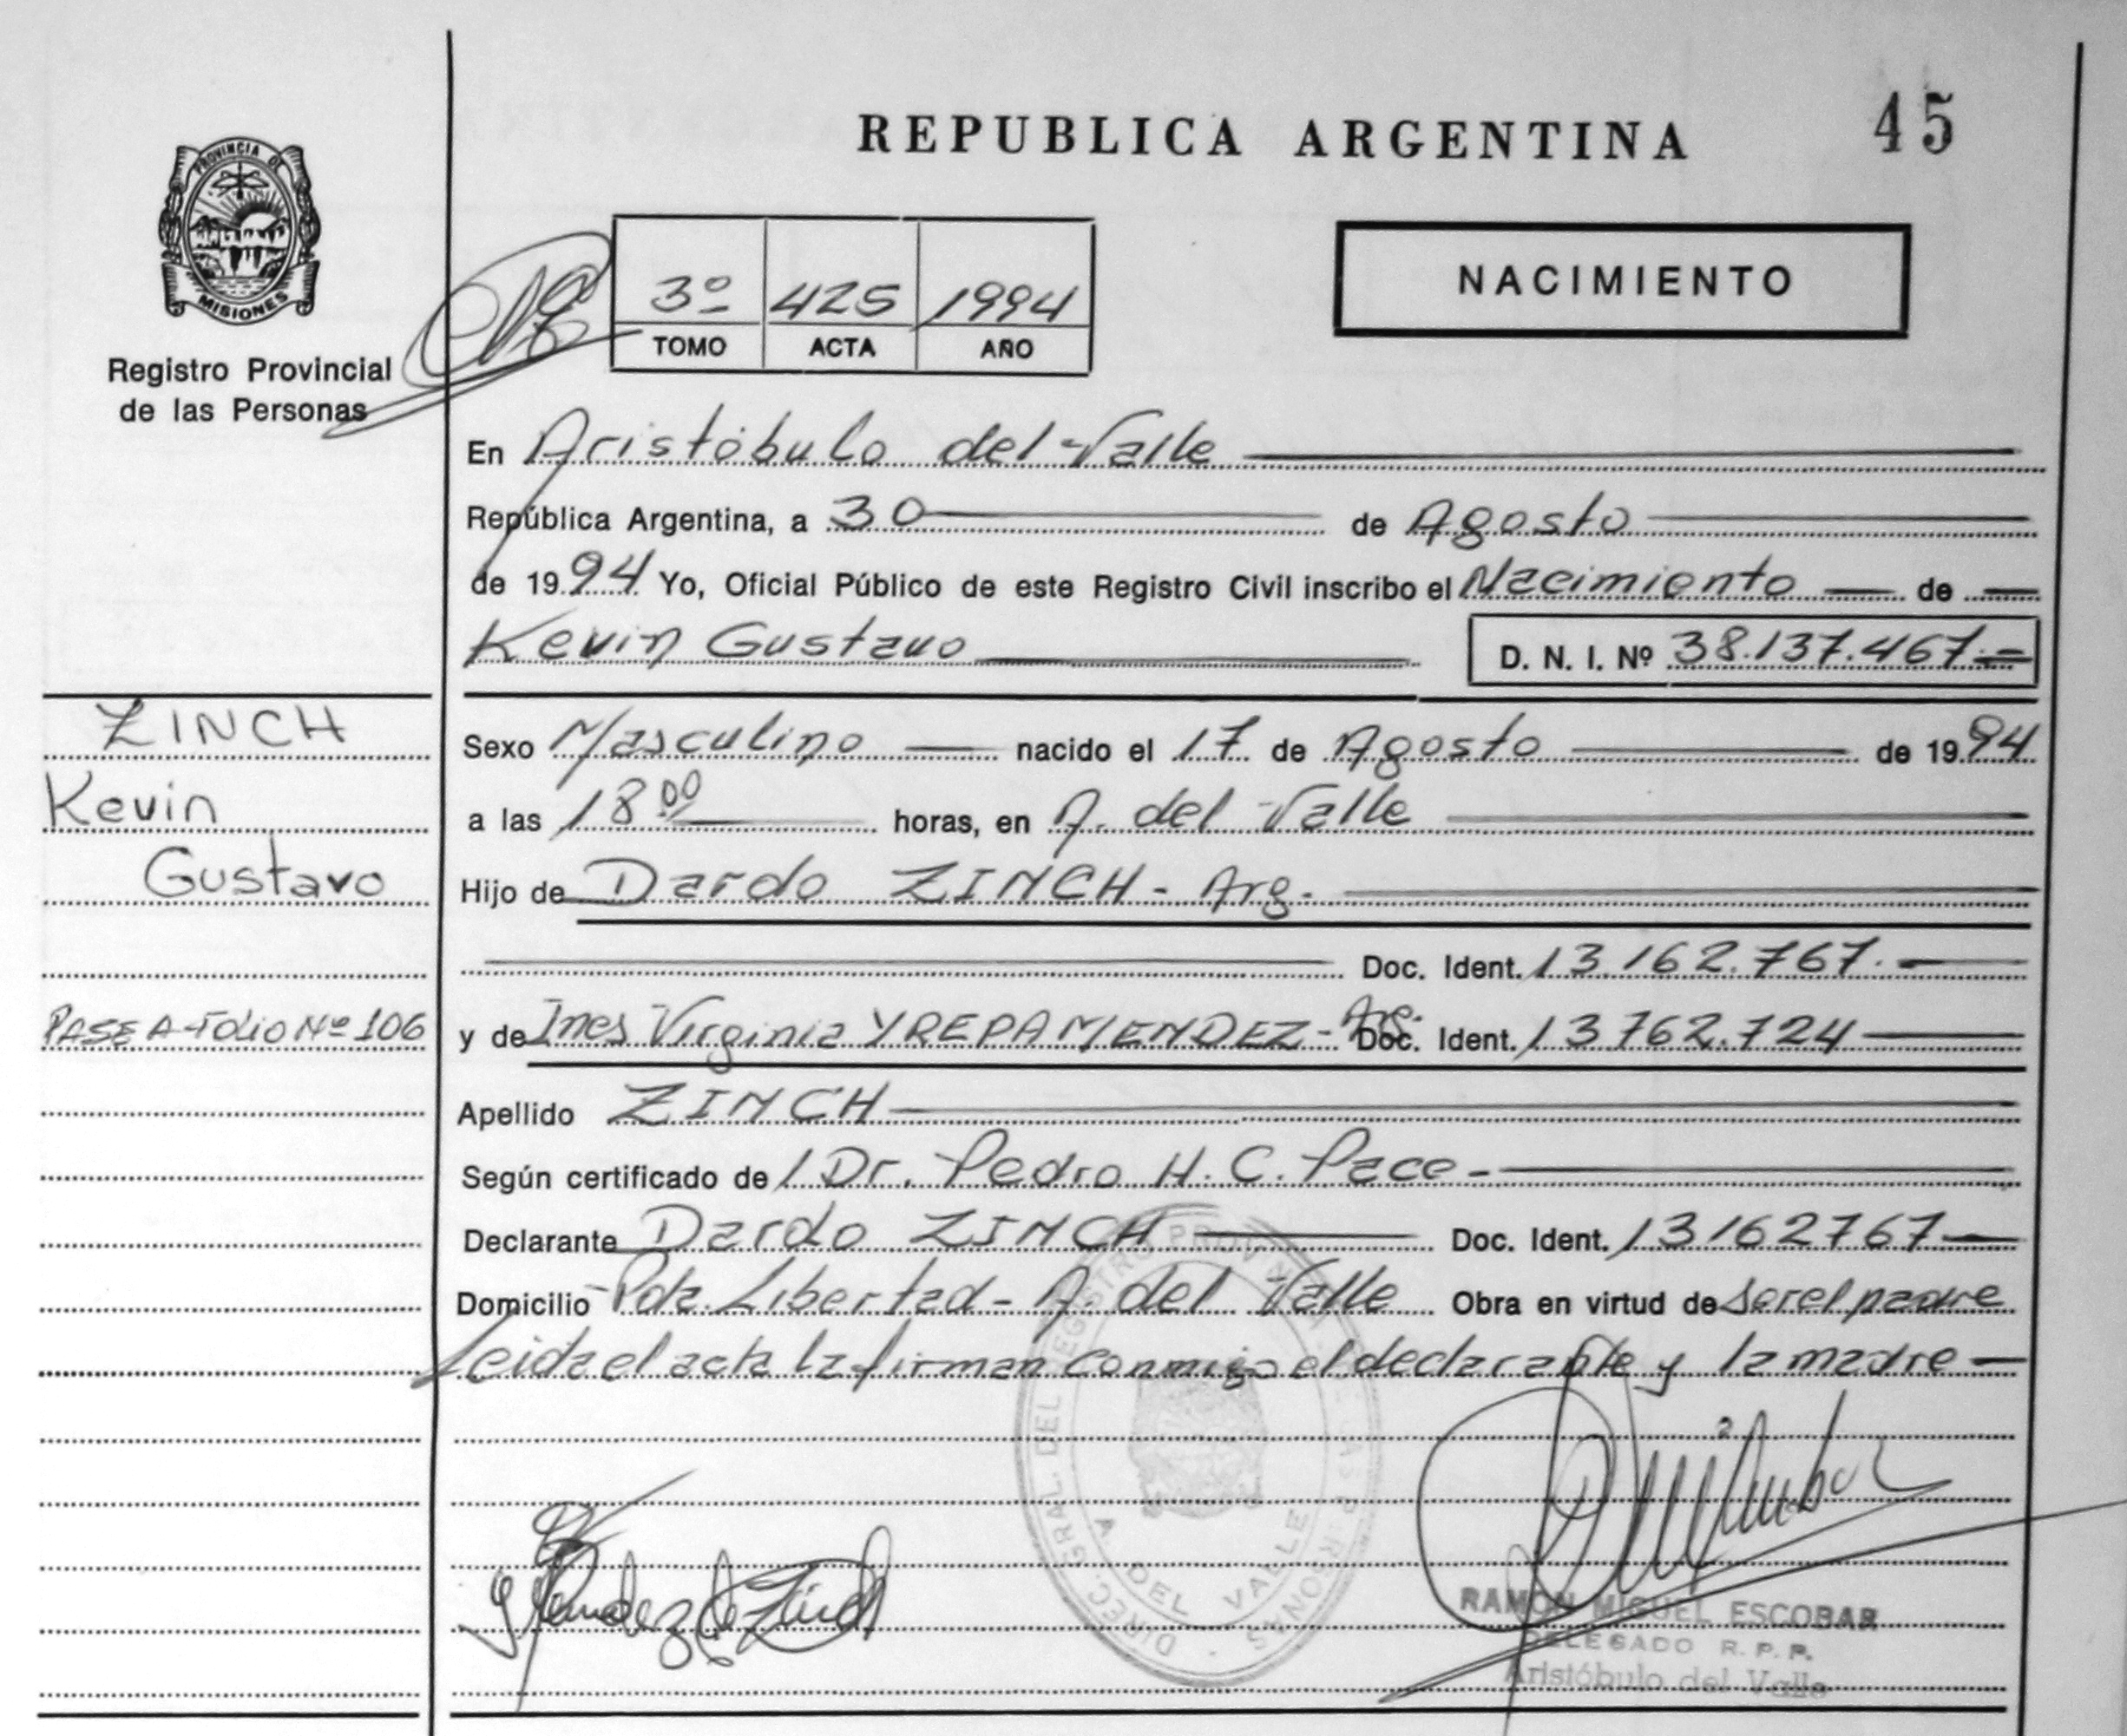 REPUBLICA ARGENTINA
45
PROVINCIA DE
MISIONES
Registro Provincial
de las Personas
3º 425 1994
TOMO ACTA AÑO
NACIMIENTO
En Aristóbulo del Valle
República Argentina, a 30 de Agosto
de 1994 Yo, Oficial Público de este Registro Civil inscribo el Nacimiento de
Kevin Gustavo D. N. I. Nº 38.137.467.=
ZINCH
Kevin
Gustavo
PASE A FOLIO Nº 106
Sexo Masculino nacido el 17 de Agosto de 1994
a las 18 00 horas, en A. del Valle
Hijo de Dardo ZINCH - Arg.
Doc. Ident. 13.162.767.
y de Ines Virginia YREPA MENDEZ - Arg. Doc. Ident. 13762.724
Apellido ZINCH
Según certificado de / Dr. Pedro H. C. Pace -
Declarante Dardo ZINCH Doc. Ident. 13162767
Domicilio Pda. Libertad - A. del Valle Obra en virtud de ser el padre
Leida el acta la firman conmigo el declarante y la madre
DIREC. GRAL. DEL REGISTRO PROV. DE LAS PERSONAS
A. DEL VALLE
Mendez de Zinch
RAMON MIGUEL ESCOBAR
DELEGADO R. P. P.
Aristóbulo del Valle